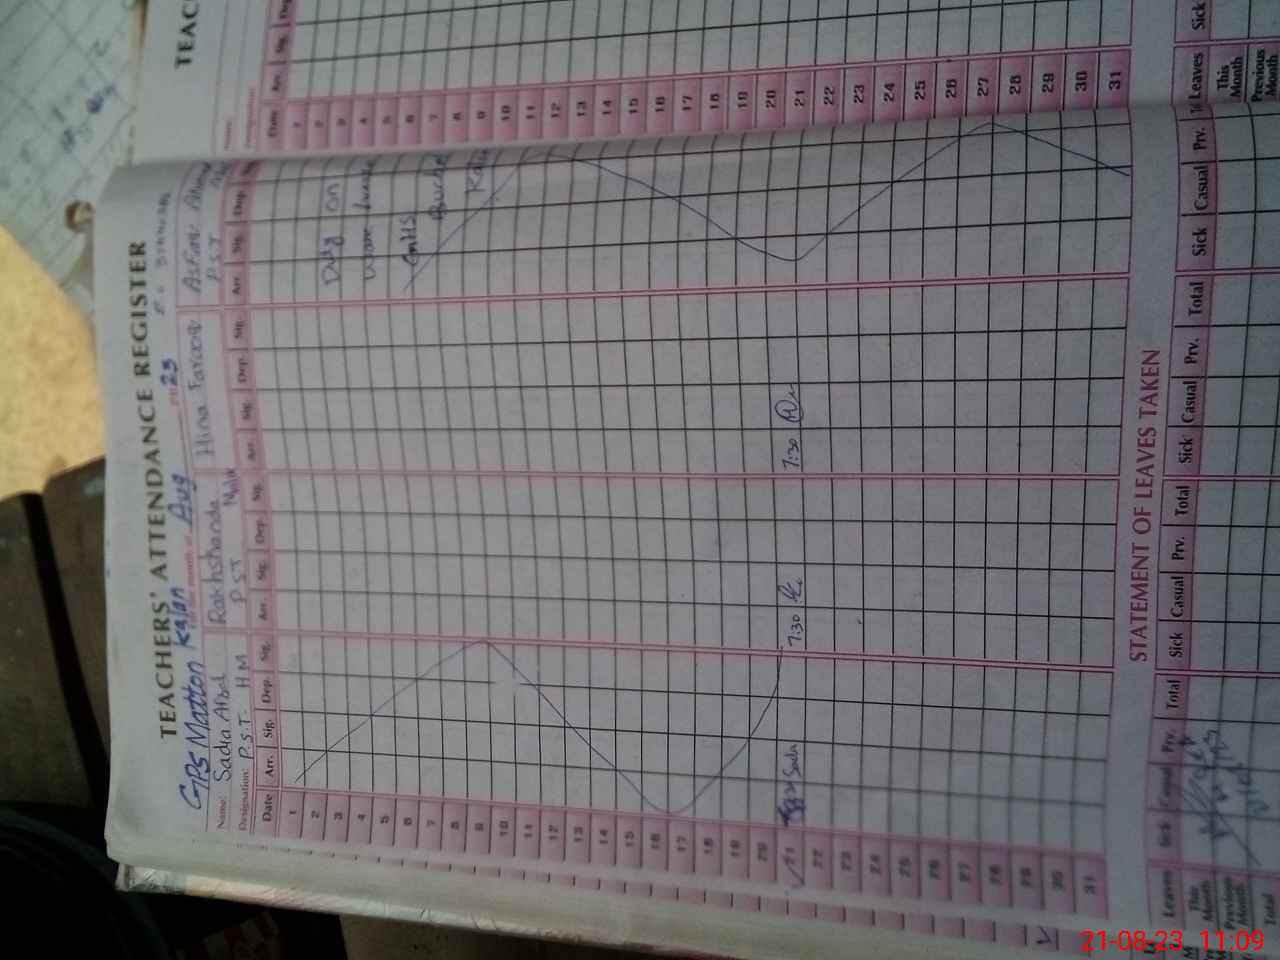 TEACHERS' ATTENDANCE REGISTER
GPS Matton Kalan Aug 2023
Name: Sadia Rakhshanda Hina Farooq
Designation: P.S.T HM PST Malik P.S.T
Date Arr. Sig. Dep. Sig. Arr. Sig. Dep. Sig. Arr. Sig. Dep. Sig. Arr. Sig. Dep.
1
2 Duty on
3
4
5
6 GMHS
7
8
9
10
11
12
13
14
15
16
17
18
19
20
21 Sadia 7:30 7:30
22
23
24
25
26
27
28
29
30
31
STATEMENT OF LEAVES TAKEN
Leaves Sick Casual Prv. Total Sick Casual Prv. Total Sick Casual Prv. Total Sick Casual Prv.
This Month
Previous Month
Total
TEAC
Date Arr. Sig. Dep
1
2
3
4
5
6
7
8
9
10
11
12
13
14
15
16
17
18
19
20
21
22
23
24
25
26
27
28
29
30
31
Leaves Sick
This Month
Previous Month
21-08-23 11:09